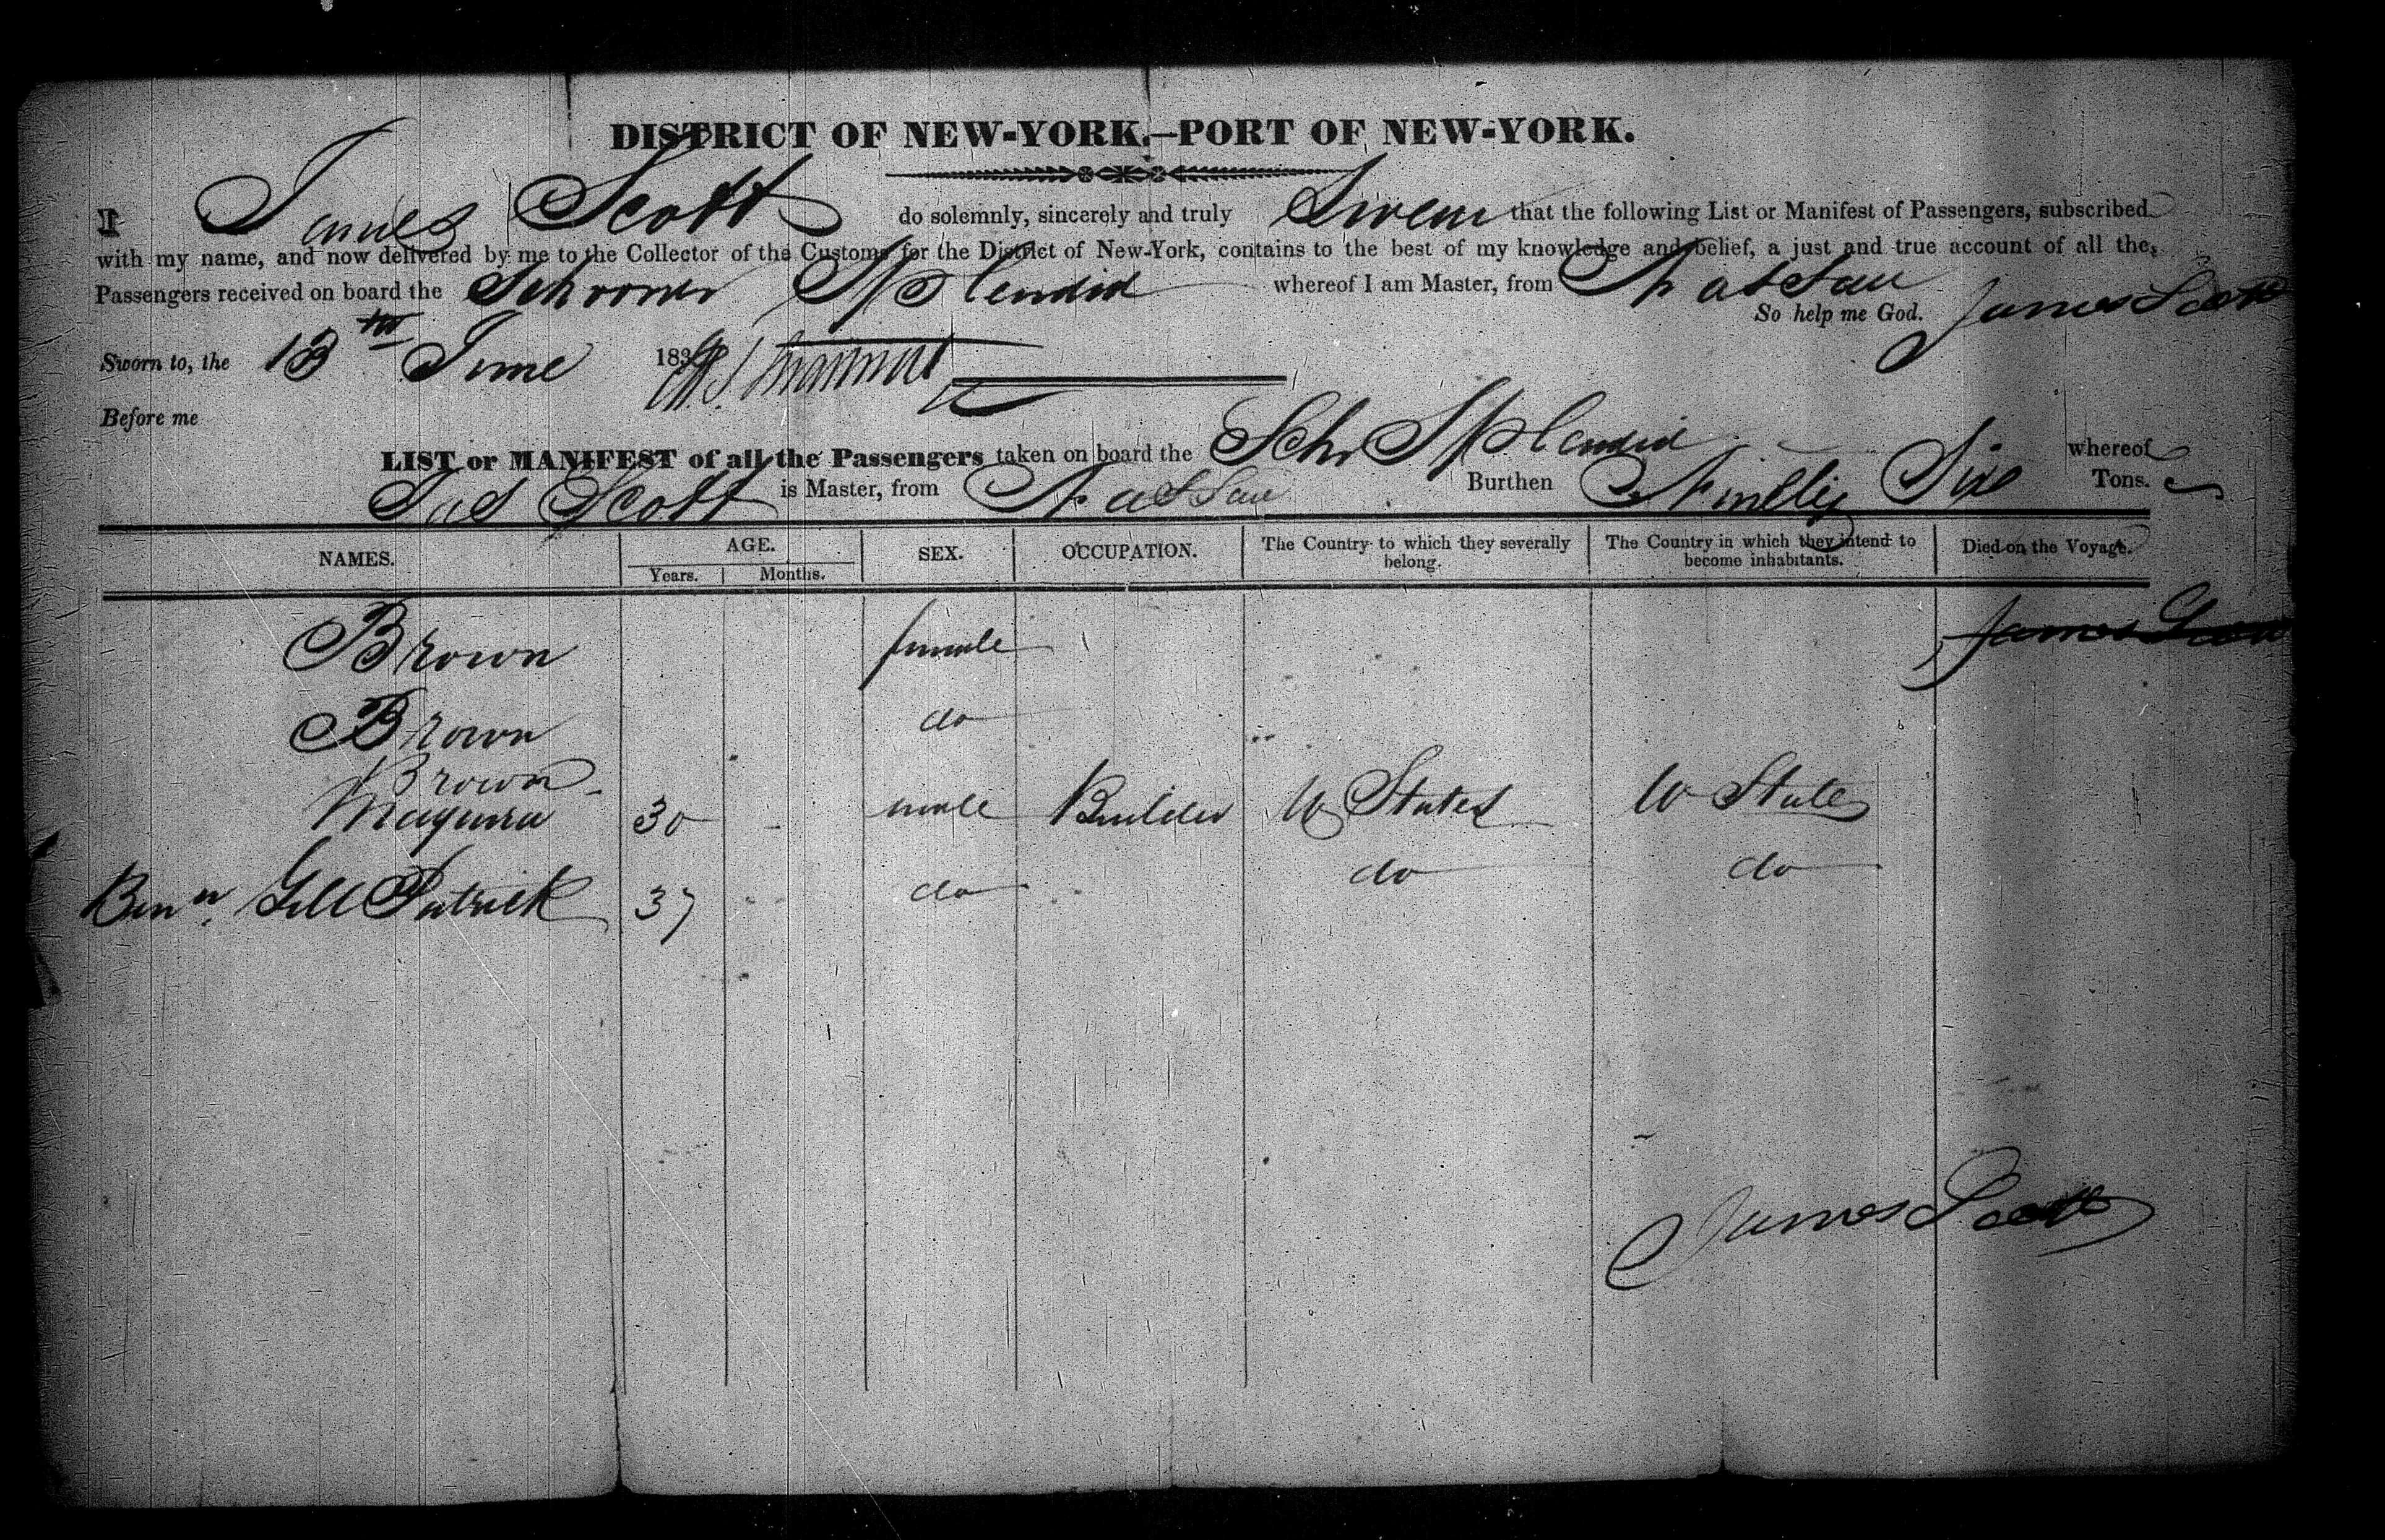 DISTRICT OF NEW-YORK.—PORT OF NEW-YORK.
I James Scott do solemnly, sincerely and truly Swear that the following List or Manifest of Passengers, subscribed
with my name, and now delivered by me to the Collector of the Customs for the District of New-York, contains to the best of my knowledge and belief, a just and true account of all the
Passengers received on board the Schooner Splendid whereof I am Master, from Nassau
So help me God. James Scott
Sworn to, the 13th June 183
Before me
LIST or MANIFEST of all the Passengers taken on board the Schr Splendid whereof
Jas Scott is Master, from Nassau Burthen Ninety Six Tons.
NAMES. AGE. SEX. OCCUPATION. The Country to which they severally belong. The Country in which they intend to become inhabitants. Died on the Voyage.
Years. Months.
Brown female James Scott
Brown do
Brown
30 male Builder U States U States
Benn. Gill Patrick 37 do do do
James Scott